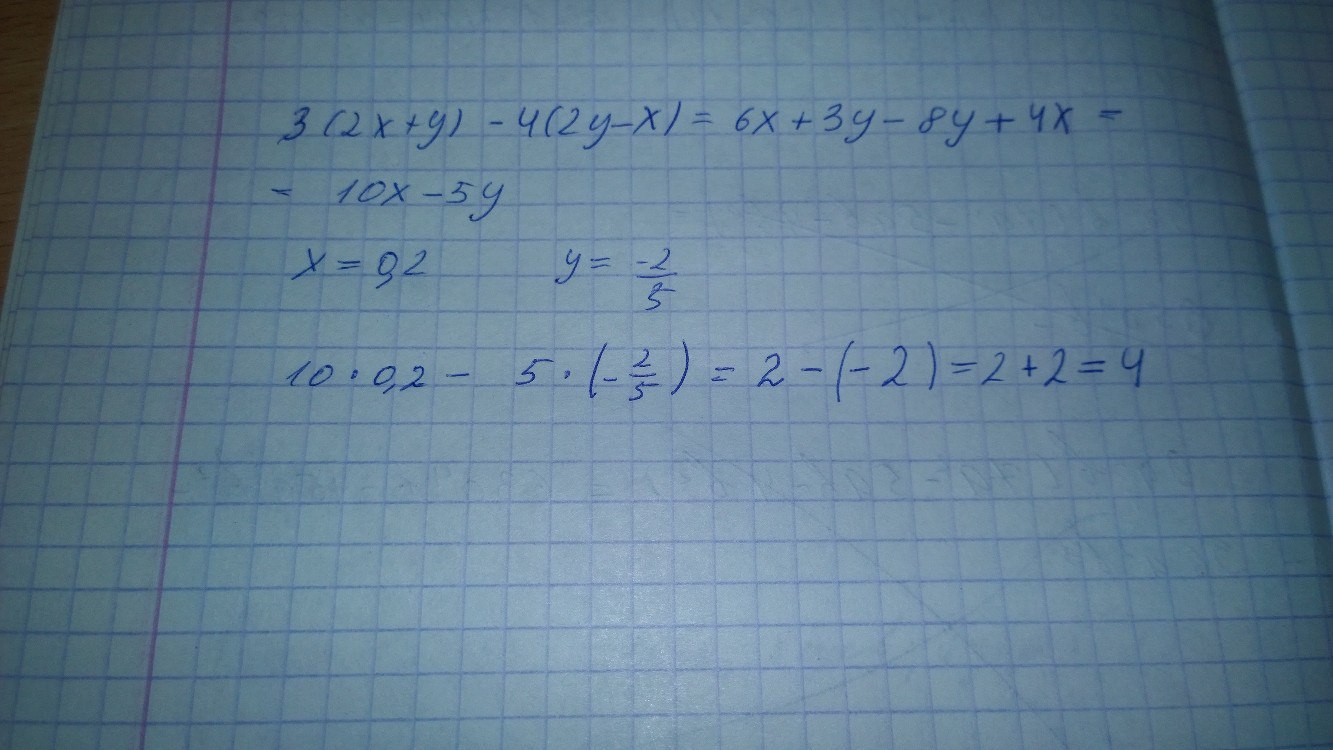 3(2x+y) - 4(2y-x) = 6x + 3y - 8y + 4x =
= 10x - 5y
x = 0,2 y = -2/5
10 · 0,2 - 5 · (-2/5) = 2 - (-2) = 2 + 2 = 4